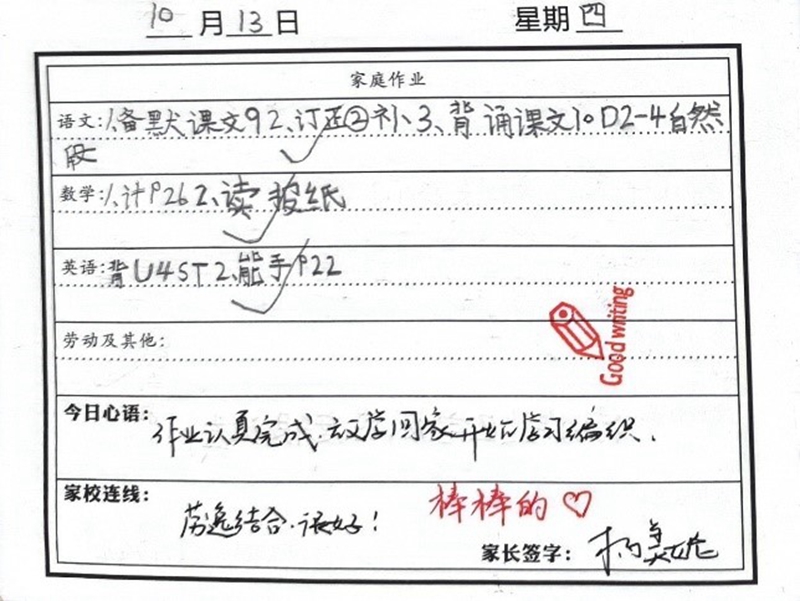 10月13日 星期四
家庭作业
语文:1、备默课文9 2、订正②补、3、背诵课文10 D2-4自然
段
数学:1、计P26 2、读报纸
英语:背U4ST 2、能手P22
Good writing
劳动及其他:
今日心语:作业认真完成.放学回家开始学习编织.
家校连线:劳逸结合.很好!
棒棒的♡
家长签字: